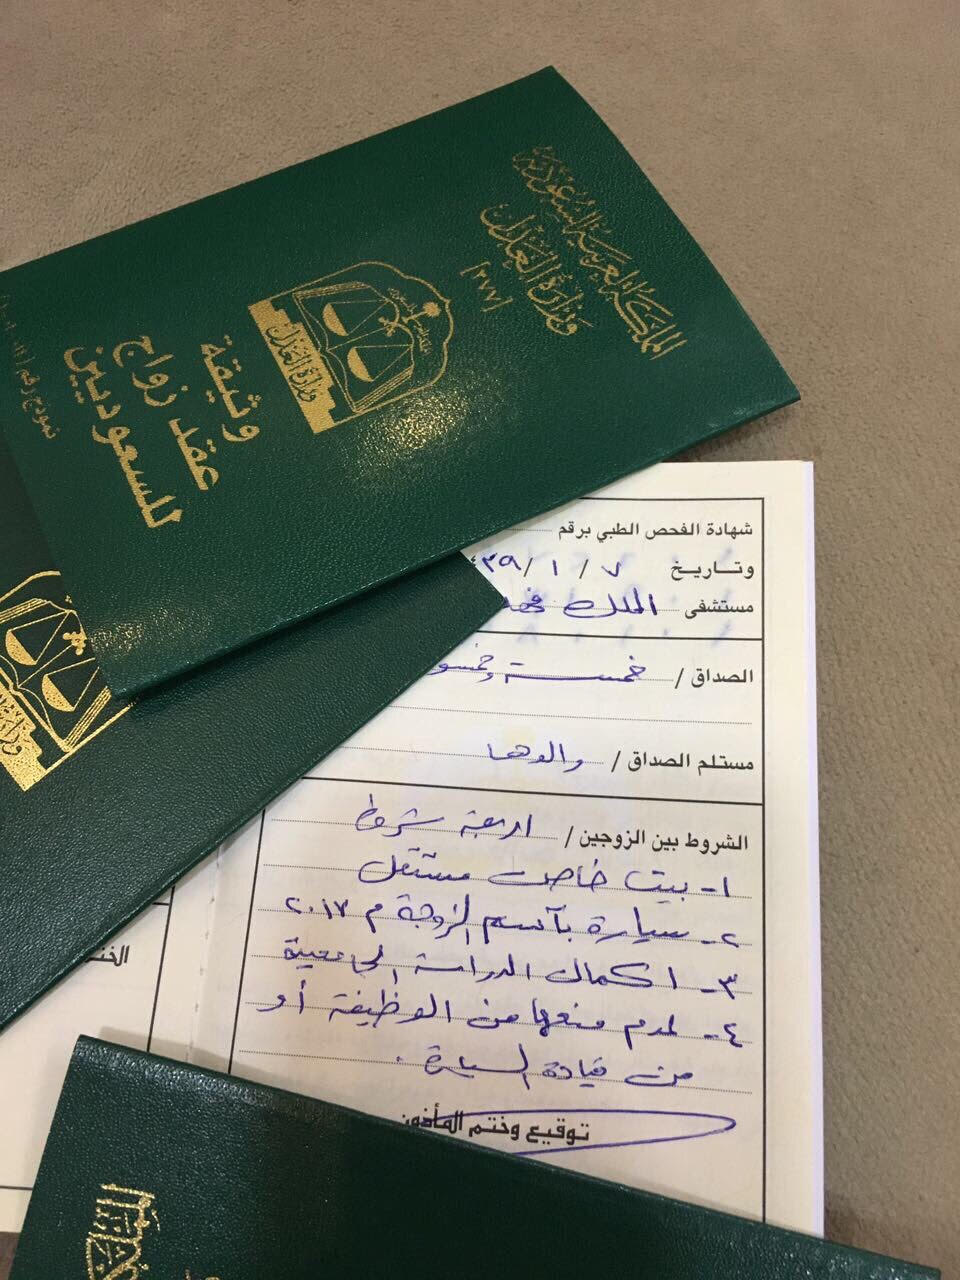 المملكة العربية السعودية
وزارة العدل
[٢٧٧]
وزارة العدل
وثيقة
عقد زواج
للسعوديين
نموذج رقم
شهادة الفحص الطبي برقم
وتاريخ ٧ / ١ / ٣٩
مستشفى الملك فهد
الصداق / خمسة وخمسو
مستلم الصداق / والدها
الشروط بين الزوجين / اربعة شروط
١- بيت خاص مستقل
٢- سيارة بآسم الزوجة م ٢٠١٧
٣- اكمال الدراسة الجامعية
٤- لعدم منعها من الوظيفة أو
من قيادة السيارة.
توقيع وختم المأذون